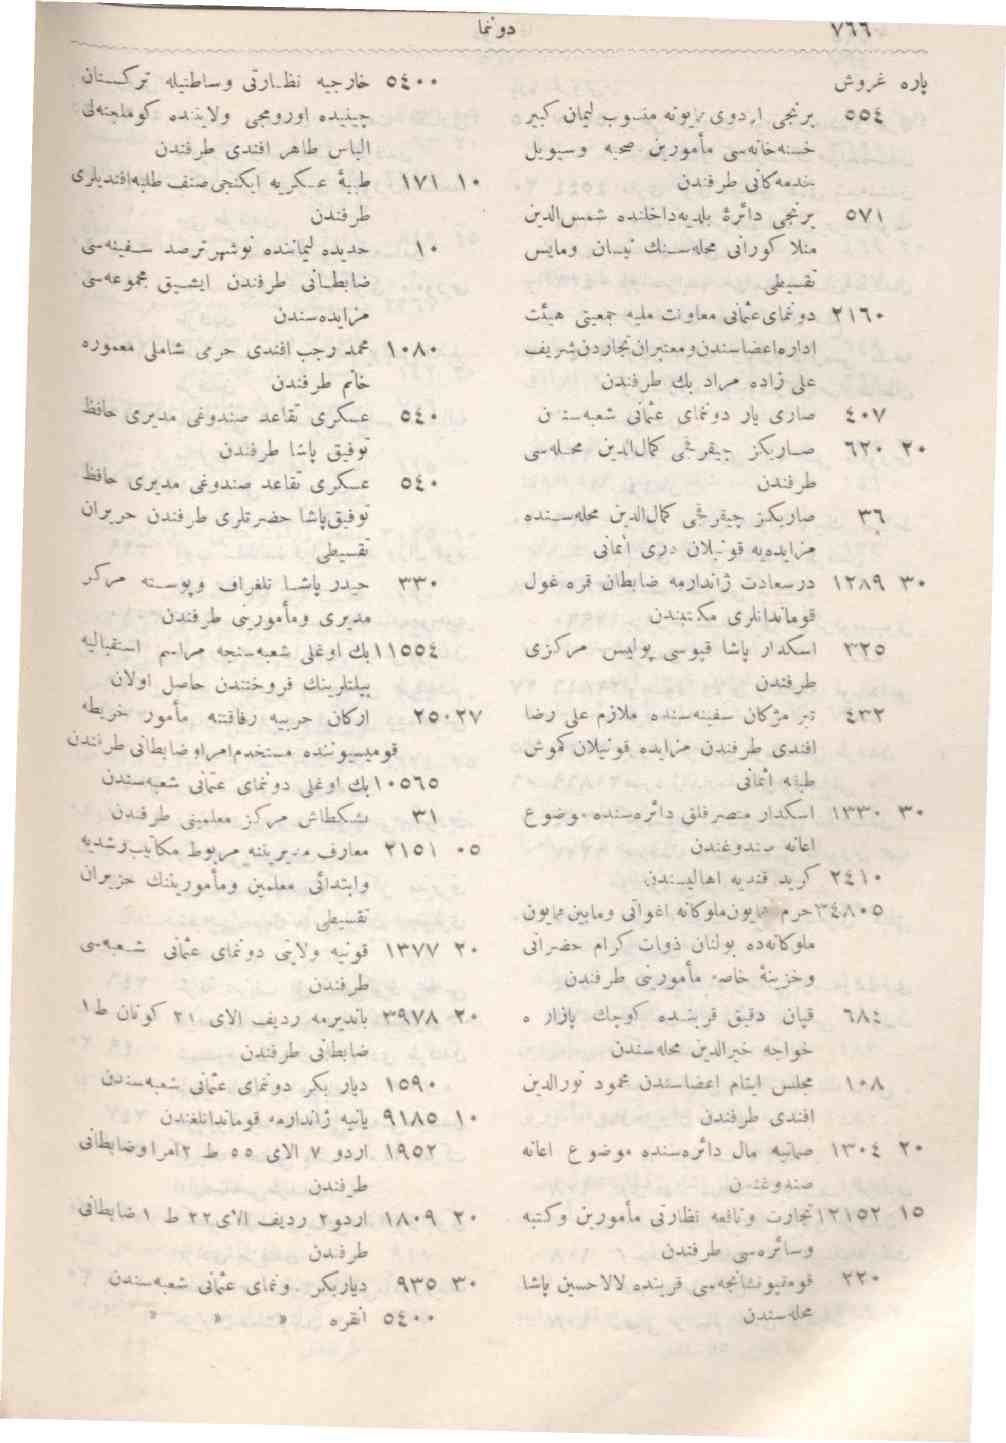 ٧٦٦
دونما
پاره غروش
٥٥٤ برنجی اردوی همایونه منسوب لیمان کبیر
خسته‌خانه‌سی مأمورین صحیه وسیویل
خدمه‌کانی طرفندن
٥٧١ برنجی دائرهٔ بلدیه‌داخلنده شمس‌الدین
منلا کورانی محله‌سنك نیسان ومایس
تقسیطی
٢١٦٠ دونمای عثمانی معاونت ملیه جمعیتی هیئت
اداره‌اعضاسندن‌ومعتبران‌تجاردن‌شریف
علی زاده مراد بك طرفندن
٤٠٧ صاری یار دونمای عثمانی شعبه‌سندن
٢٠ ٦٢٠ صاریکز چیقرقجی کمال‌الدین محله‌سی
طرفندن
٣٦ صاریکز چیقرقجی کمال‌الدین محله‌سنده
مزایده‌یه قونیلان دری اثمانی
٣٠ ١٢٨٩ درسعادت ژاندارمه ضابطان قره غول
قوماندانلری مکتبندن
٣٢٥ اسکدار پاشا قپوسی پولیس مرکزی
طرفندن
٤٣٢ تیر مژکان سفینه‌سنده ملازم علی رضا
افندی طرفندن مزایده قونیلان کموش
طبقه اثمانی
٣٠ ١٣٣٠ اسکدار متصرفلق دائره‌سنده موضوع
اعانه صندوغندن
٢٤١٠ کرید قندیه اهالیسندن
٣٤٨٠٥ حرم همایون‌ملوکانه اغواتی ومابین‌همایون
ملوکانه‌ده بولنان ذوات کرام حضراتی
وخزینهٔ خاصه مأمورینی طرفندن
٦٨٤ قپان دقیق قربنده کوچك پازار ه
خواجه خیرالدین محله‌سندن
١٠٨ مجلس ایتام اعضاسندن محمود نورالدین
افندی طرفندن
٢٠ ١٣٠٤ صماتیه مال دائره‌سنده موضوع اعانه
صندوغندن
١٥ ١٢١٥٢ تجارت ونافعه نظارتی مأمورین وکتبه
وسائره‌سی طرفندن
٢٢٠ قومقپونشانجه‌سی قربنده لالاحسین پاشا
محله‌سندن
٥٤٠٠ خارجیه نظارتی وساطتیله ترکستان
چینیده اورومجی ولایتنده کوملجنه‌لی
الیاس طاهر افندی طرفندن
١٠ ١٧١ طبیهٔ عسکریه ایکنجی‌صنف طلبه‌افندیلری
طرفندن
١٠ حدیده لیماننده نوشهرترصد سفینه‌سی
ضابطانی طرفندن ایشیق مجموعه‌سی
مزایده‌سندن
١٠٨٠ محمد رجب افندی حرمی شاملی معموره
خانم طرفندن
٥٤٠ عسکری تقاعد صندوغی مدیری حافظ
توفیق پاشا طرفندن
٥٤٠ عسکری تقاعد صندوغی مدیری حافظ
توفیق‌پاشا حضرتلری طرفندن حزیران
تقسیطی
٣٣٠ حیدر پاشا تلغراف وپوسته مرکز
مدیری ومأمورینی طرفندن
١١٥٥٤ بك اوغلی شعبه‌سنجه مراسم استقبالیه
بیلتلرینك فروختندن حاصل اولان
٢٥٠٢٧ ارکان حربیه رفاقتنه مأمور خریطه
قومیسیوننده مستخدم‌امراوضابطانی طرفندن
١٠٥٦٥ بك اوغلی دونمای عثمانی شعبه‌سندن
٣١ بشکطاش مرکز معلمینی طرفندن
٠٥ ٢١٥١ معارف مدیریتنه مربوط مکاتیب‌رشدیه
وابتدائی معلمین ومأمورینك حزیران
تقسیطی
٢٠ ١٣٧٧ قونیه ولایتی دونمای عثمانی شعبه‌سی
طرفندن
٢٠ ٣٩٧٨ باندیرمه ردیف الای ٢١ کونان ط١
ضابطانی طرفندن
١٥٩٠ دیار بکر دونمای عثمانی شعبه‌سندن
١٠ ٩١٨٥ یانیه ژاندارمه قوماندانلغندن
١٩٥٢ اردو ٧ الای ٥٥ ط ٢امراوضابطانی
طرفندن
٢٠ ١٨٠٩ اردو٢ ردیف الای٢٢ ط ١ضابطانی
طرفندن
٣٠ ٩٣٥ دیاربکر دونمای عثمانی شعبه‌سندن
٥٤٠٠ انقره » » »